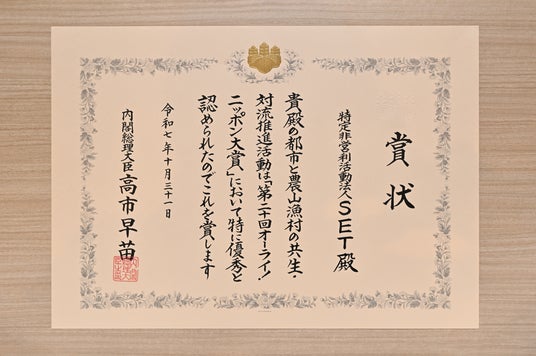 賞状
特定非営利活動法人SET殿
貴殿の都市と農山漁村の共生・
対流推進活動は「第二十回オーライ!
ニッポン大賞」において特に優秀と
認められたのでこれを賞します
令和七年十月三十一日
内閣総理大臣 高市早苗